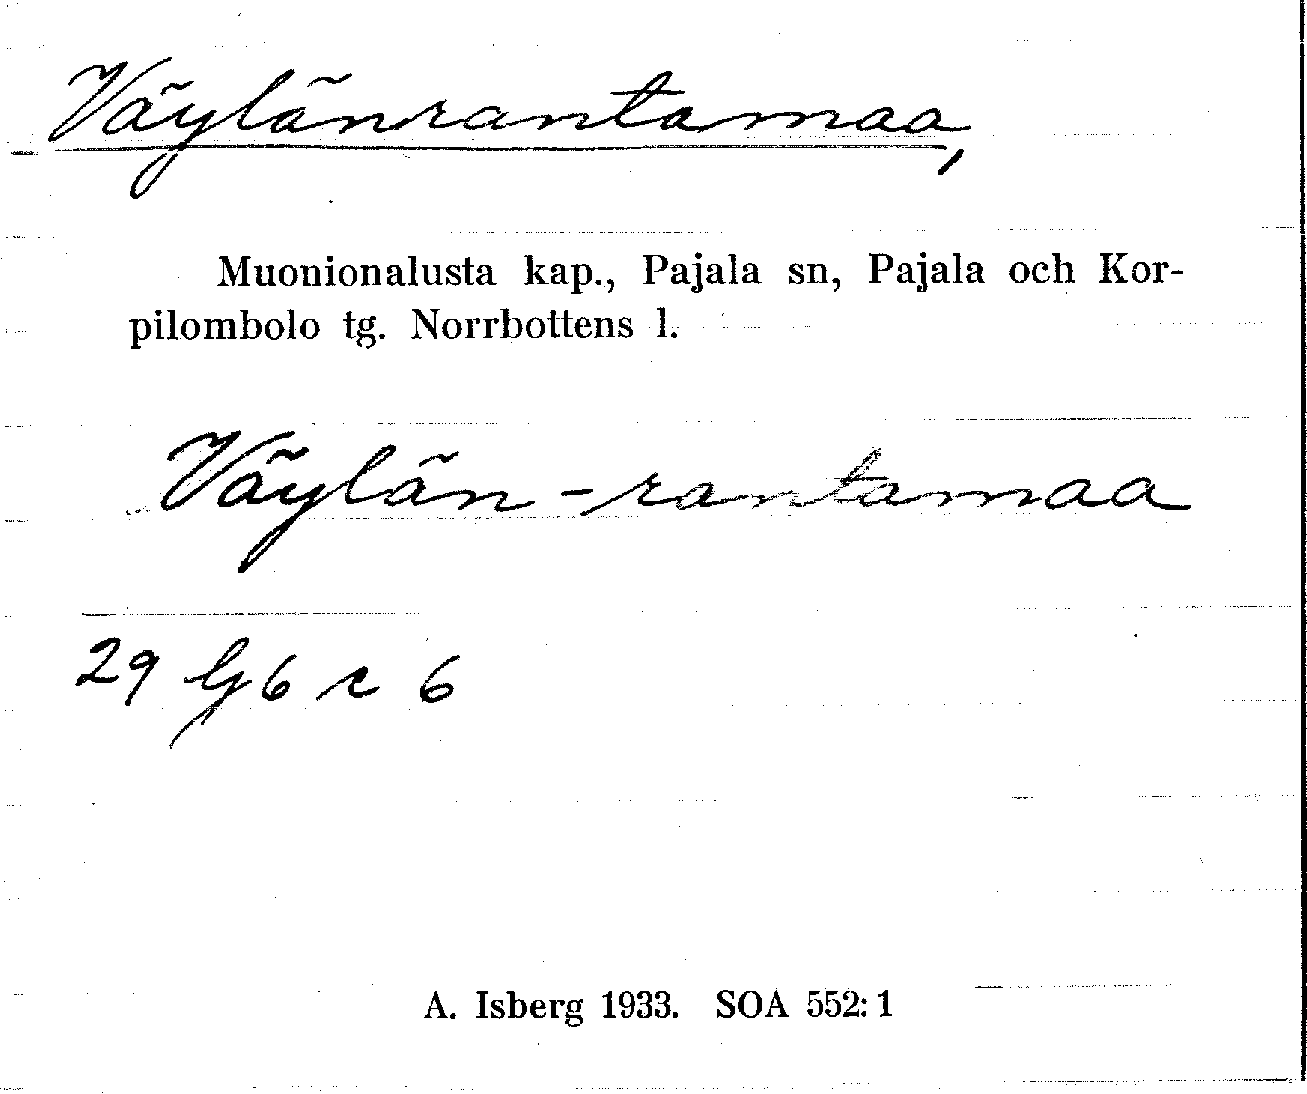 Väylänrantamaa,
Muonionalusta kap., Pajala sn, Pajala och Kor-
pilombolo tg. Norrbottens l.
Väylän-rantamaa
29 G6 c 6
A. Isberg 1933. SOA 552:1